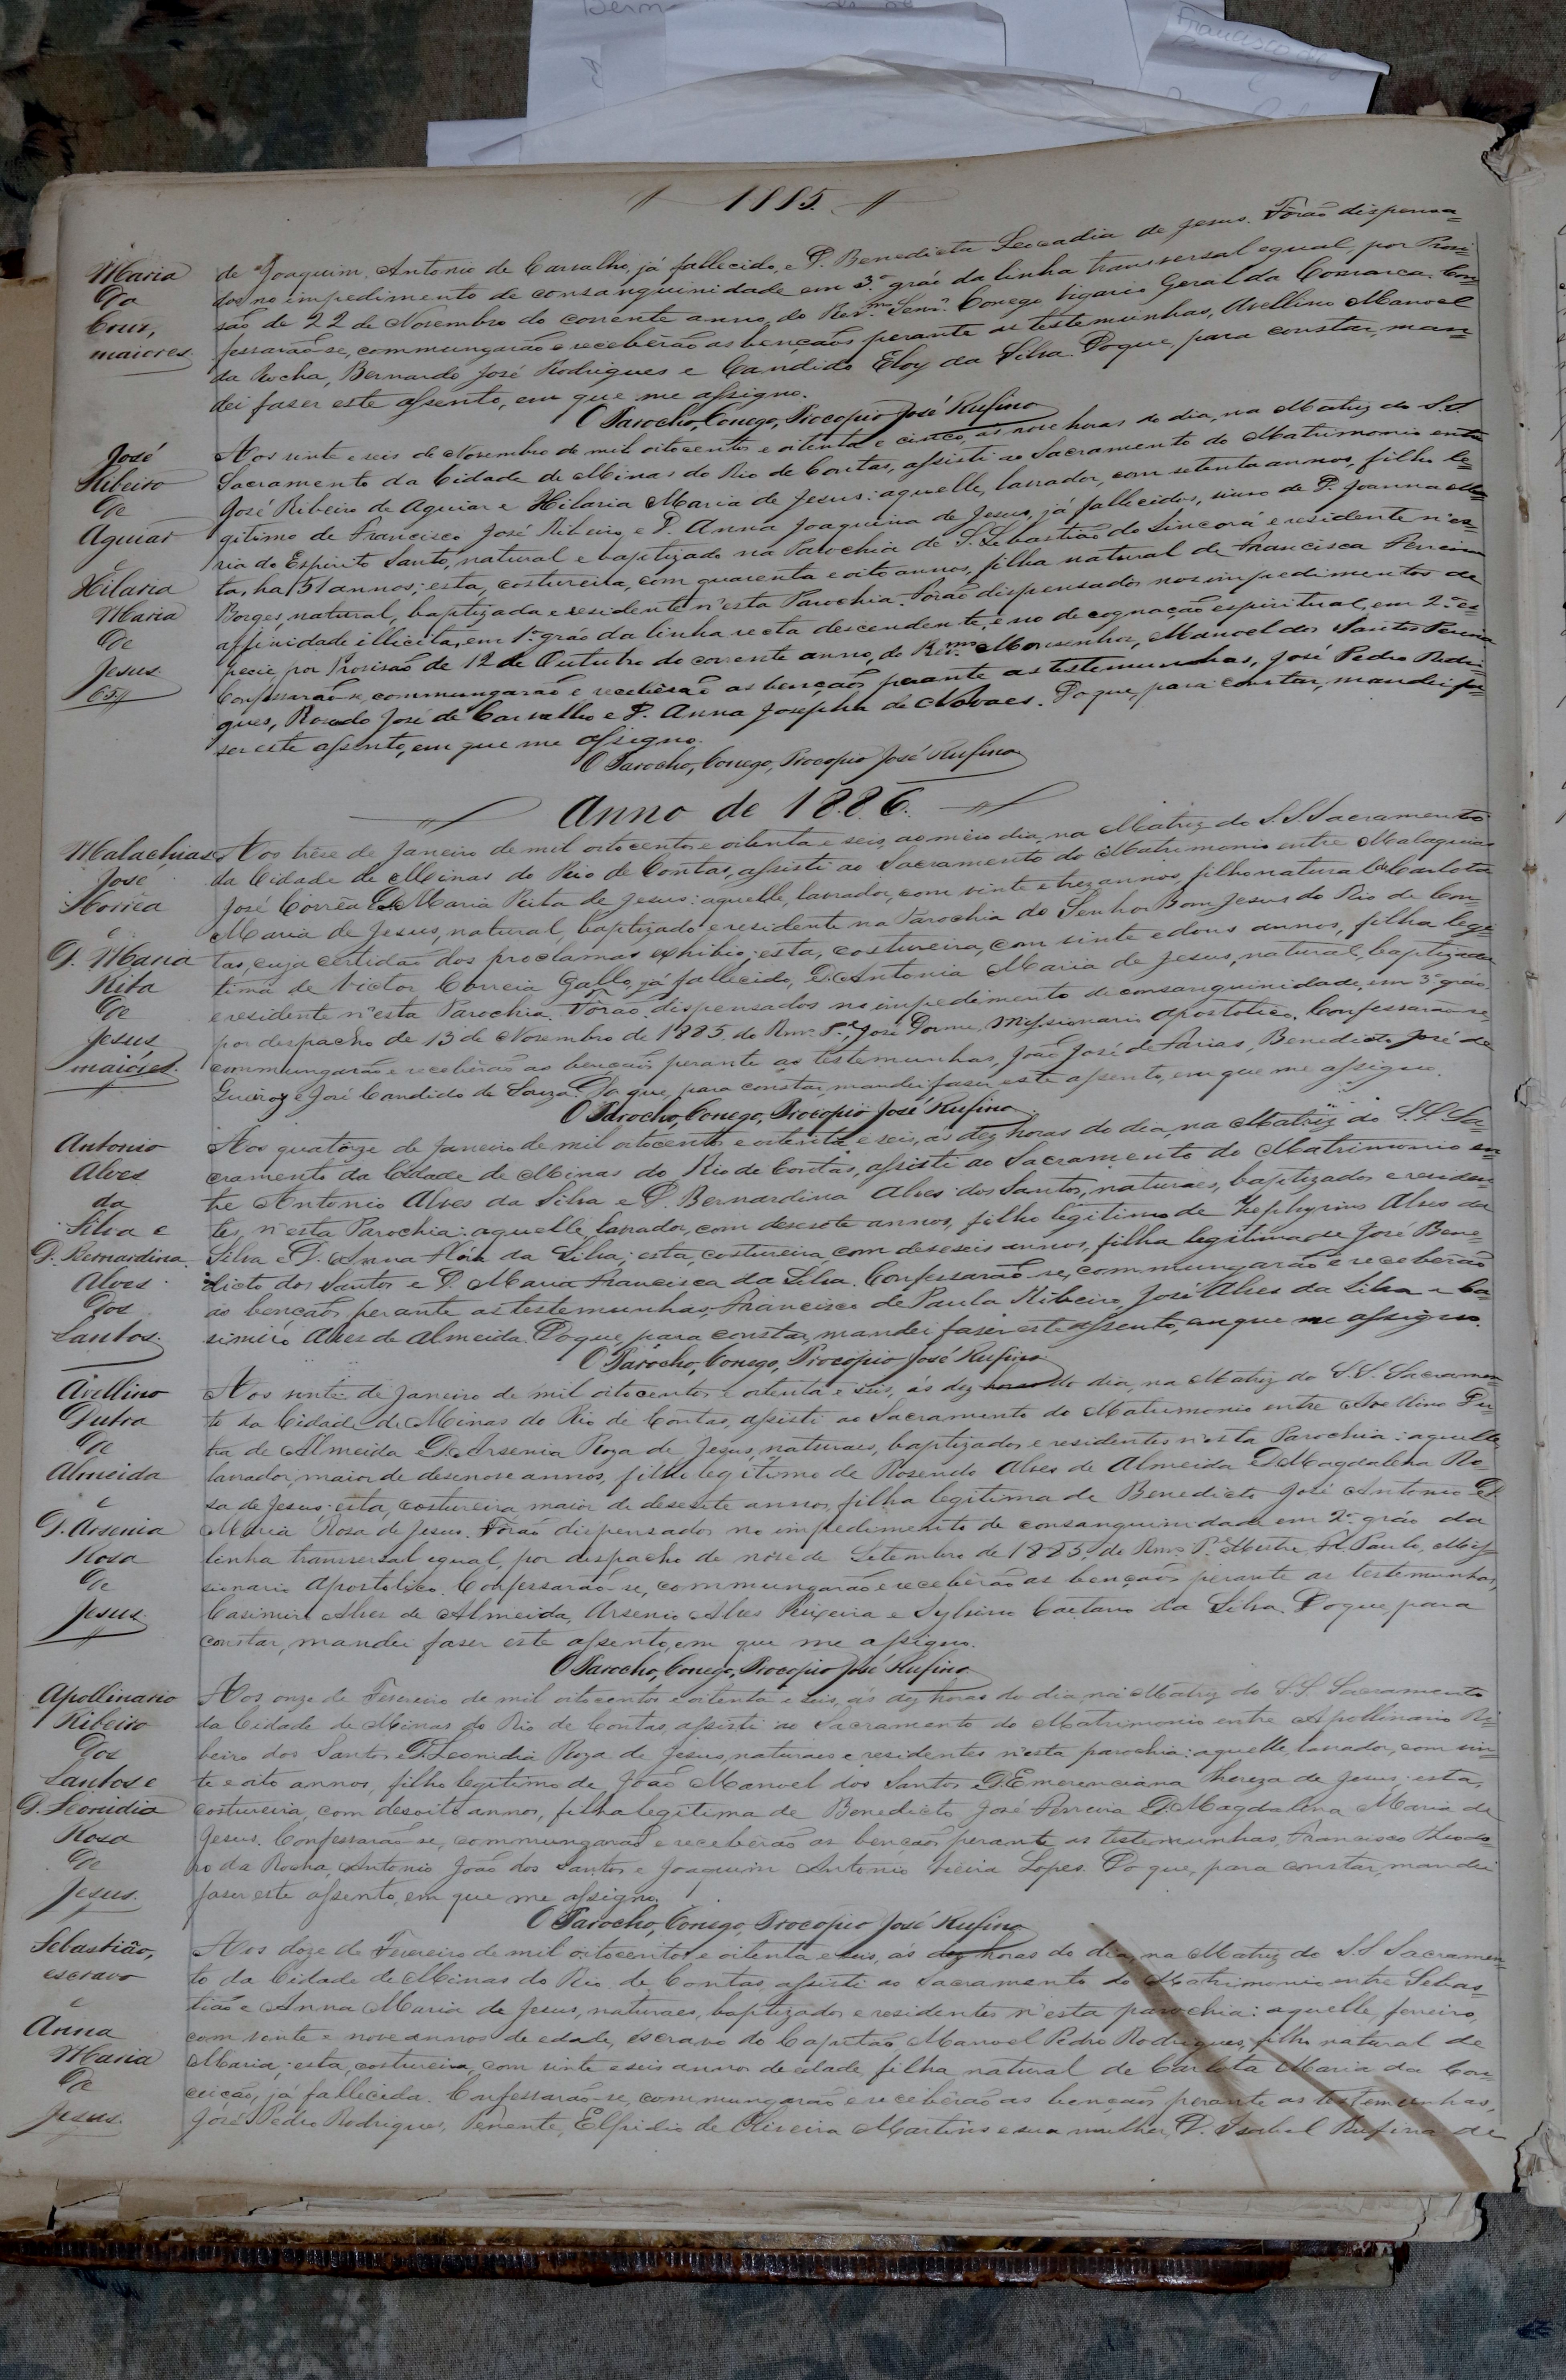 1885.
Maria
da
Cruz,
maiores.
de Joaquim Antonio de Carvalho, já fallecido, e D. Benedicta Leocadia de Jesus. Forão dispensa-
dos no impedimento de consanguinidade em 3.º gráo da linha transversal egual, por Provi-
são de 22 de Novembro do corrente anno, do Rev.mo Senr. Conego Vigario Geral da Comarca. Con-
fessarão-se, commungarão e receberão as bençãos perante as testemunhas, Avellino Manoel
da Rocha, Bernardo José Rodrigues e Candido Eloy da Silva. Do que, para constar, man-
dei faser este assento, em que me assigno.
O Parocho, Conego, Procopio José Rufino
José
Ribeiro
de
Aguiar
e
Hilaria
Maria
de
Jesus.
Aos vinte e seis de Novembro de mil oitocentos e oitenta e cinco, ás nove horas do dia, na Matriz do S.S.
Sacramento da Cidade de Minas do Rio de Contas, assisti ao Sacramento do Matrimonio entre
José Ribeiro de Aguiar e Hilaria Maria de Jesus: aquelle, lavrador, com setenta annos, filho le-
gitimo de Francisco José Ribeiro e D. Anna Joaquina de Jesus, já fallecidos, viuvo de D. Joanna Ma-
ria do Espirito Santo, natural e baptizado na Parochia de S. Sebastião do Sincorá e residente n'es-
ta, ha 51 annos; esta, costureira, com quarenta e oito annos, filha natural de Francisca Ferreira
Borges, natural, baptizada e residente n'esta Parochia. Forão dispensados nos impedimentos de
affinidade illicita, em 1.º gráo da linha recta descendente, e no de cognação espiritual, em 2.ª es-
pecie, por Provisão de 12 de Outubro do corrente anno, do Rev.mo Monsenhor, Manoel dos Santos Pereira
Confessarão-se, commungarão e receberão as bençãos perante as testemunhas, José Pedro Rodri-
gues, José de Carvalho e D. Anna Josepha de Novaes. Do que, para constar, mandei fa-
ser este assento, em que me assigno.
O Parocho, Conego, Procopio José Rufino
Anno de 1886.
Malachias
José
Correa
e
D. Maria
Rita
de
Jesus
maiores.
Aos trêse de Janeiro de mil oitocentos e oitenta e seis, ao meio dia, na Matriz do S.S. Sacramento
da Cidade de Minas do Rio de Contas, assisti ao Sacramento do Matrimonio entre Malaquias
José Corrêa e D. Maria Rita de Jesus: aquelle, lavrador, com vinte e trez annos, filho natural de Carlota
Maria de Jesus, natural, baptizado e residente na Parochia do Senhor Bom Jesus do Rio de Con-
tas, cuja certidão dos proclamas exhibio; esta, costureira, com vinte e dous annos, filha legi-
tima de Victor Correia Gallo, já fallecido, e D. Antonia Maria de Jesus, natural, baptizada
e residente n'esta Parochia. Forão dispensados no impedimento de consanguinidade, em 3.º gráo,
por despacho de 13 de Novembro de 1885, do Rmo. P.e José Missionario Apostolico. Confessarão-se,
commungarão e receberão as bençãos perante as testemunhas, João José de Farias, Benedicto José de
Queiroz e José Candido de Souza. Do que, para constar, mandei faser este assento, em que me assigno.
O Parocho, Conego, Procopio José Rufino
Antonio
Alves
da
Silva e
D. Bernardina
Alves
dos
Santos.
Aos quatorze de Janeiro de mil oitocentos e oitenta e seis, ás dez horas do dia, na Matriz do S.S. Sa-
cramento da Cidade de Minas do Rio de Contas, assisti ao Sacramento do Matrimonio en-
tre Antonio Alves da Silva e D. Bernardina Alves dos Santos, naturaes, baptizados e residen-
tes n'esta Parochia: aquelle, lavrador, com desesete annos, filho legitimo de Zephyrino Alves da
Silva e D. Anna da Silva; esta, costureira, com deseseis annos, filha legitima de José Bene-
dicto dos Santos e D. Maria Francisca da Silva. Confessarão-se, commungarão e receberão
as bençãos perante as testemunhas, Francisco de Paula Ribeiro, José Alves da Silva e Ca-
simiro Alves de Almeida. Do que, para constar, mandei faser este assento, em que me assigno.
O Parocho, Conego, Procopio José Rufino
Avellino
Dutra
de
Almeida
e
D. Arsenia
Rosa
de
Jesus.
Aos vinte de Janeiro de mil oitocentos e oitenta e seis, ás dez horas do dia, na Matriz do S.S. Sacramen-
to da Cidade de Minas do Rio de Contas, assisti ao Sacramento do Matrimonio entre Avellino Du-
tra de Almeida e D. Arsenia Roza de Jesus, naturaes, baptizados e residentes n'esta Parochia: aquelle,
lavrador, maior de desenove annos, filho legitimo de Rosendo Alves de Almeida e D. Magdalena Ro-
sa de Jesus; esta, costureira, maior de desesete annos, filha legitima de Benedicto José Antonio e D.
Maria Rosa de Jesus. Forão dispensados no impedimento de consanguinidade em 2.º gráo da
linha transversal egual, por despacho de nove de Setembro de 1885, do Rmo. P. Mestre, Fr. Paulo, Mis-
sionario Apostolico. Confessarão-se, commungarão e receberão as bençãos perante as testemunhas,
Casimiro Alves de Almeida, Arsenio Alves Teixeira e Sylvino Caetano da Silva. Do que, para
constar, mandei faser este assento, em que me assigno.
O Parocho, Conego, Procopio José Rufino.
Apollinario
Ribeiro
dos
Santos e
D. Leonidia
Rosa
de
Jesus.
Aos onze de Fevereiro de mil oitocentos e oitenta e seis, ás dez horas do dia, na Matriz do S.S. Sacramento
da Cidade de Minas do Rio de Contas, assisti ao Sacramento do Matrimonio entre Apollinario Ri-
beiro dos Santos e D. Leonidia Roza de Jesus, naturaes e residentes n'esta parochia: aquelle, lavrador, com vin-
te e oito annos, filho legitimo de João Manoel dos Santos e D. Emerenciana Thereza de Jesus; esta,
costureira, com desoito annos, filha legitima de Benedicto José Ferreira e D. Magdalena Maria de
Jesus. Confessarão-se, commungarão e receberão as bençãos perante as testemunhas, Francisco Theodo-
ro da Rocha, Antonio João dos Santos e Joaquim Antonio Vieira Lopes. Do que, para constar, mandei
faser este assento, em que me assigno.
O Parocho, Conego, Procopio José Rufino
Sebastião,
escravo
e
Anna
Maria
de
Jesus.
Aos doze de Fevereiro de mil oitocentos e oitenta e seis, ás dez horas do dia, na Matriz do S.S. Sacramen-
to da Cidade de Minas do Rio de Contas, assisti ao Sacramento do Matrimonio entre Sebas-
tião e Anna Maria de Jesus, naturaes, baptizados e residentes n'esta parochia: aquelle, ferreiro,
com vinte e nove annos de edade, escravo do Capitão Manoel Pedro Rodrigues, filho natural de
Maria; esta, costureira, com vinte e seis annos de edade, filha natural de Carlota Maria da Con-
ceição, já fallecida. Confessarão-se, commungarão e receberão as bençãos perante as testemunhas,
José Pedro Rodrigues, Tenente, Elpidio de Oliveira Martins e sua mulher, D. Isabel Rufina de